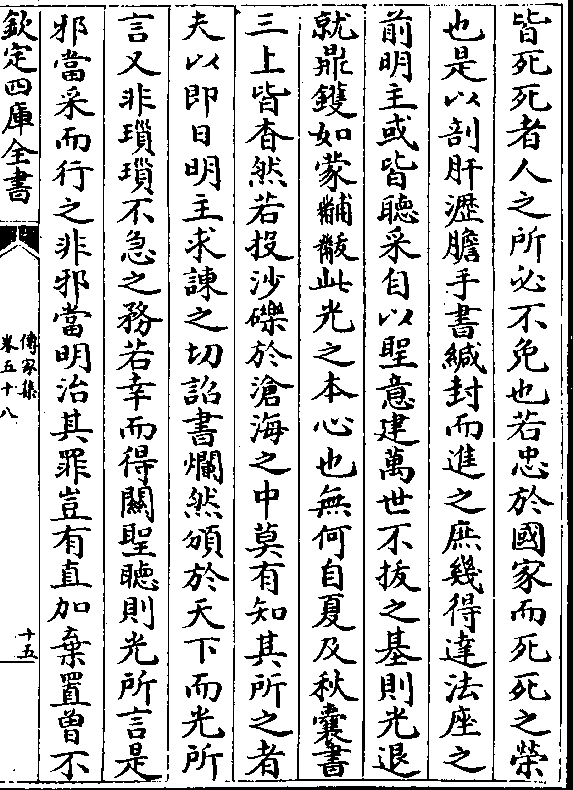 皆死死者人之所必不免也若忠於國家而死死之榮
也是以剖肝瀝膽手書緘封而進之庶幾得達法座之
前明主或皆聽采自以聖意建萬世不拔之基則光退
就鼎鑊如蒙黼黻此光之本心也無何自夏及秋囊書
三上皆杳然若投沙礫於滄海之中莫有知其所之者
夫以即日明主求諫之切詔書爛然頒於天下而光所
言又非瑣瑣不急之務若幸而得關聖聽則光所言是
邪當采而行之非邪當明治其罪豈有直加棄置曾不
欽定四庫全書
傳家集
卷五十八
十五